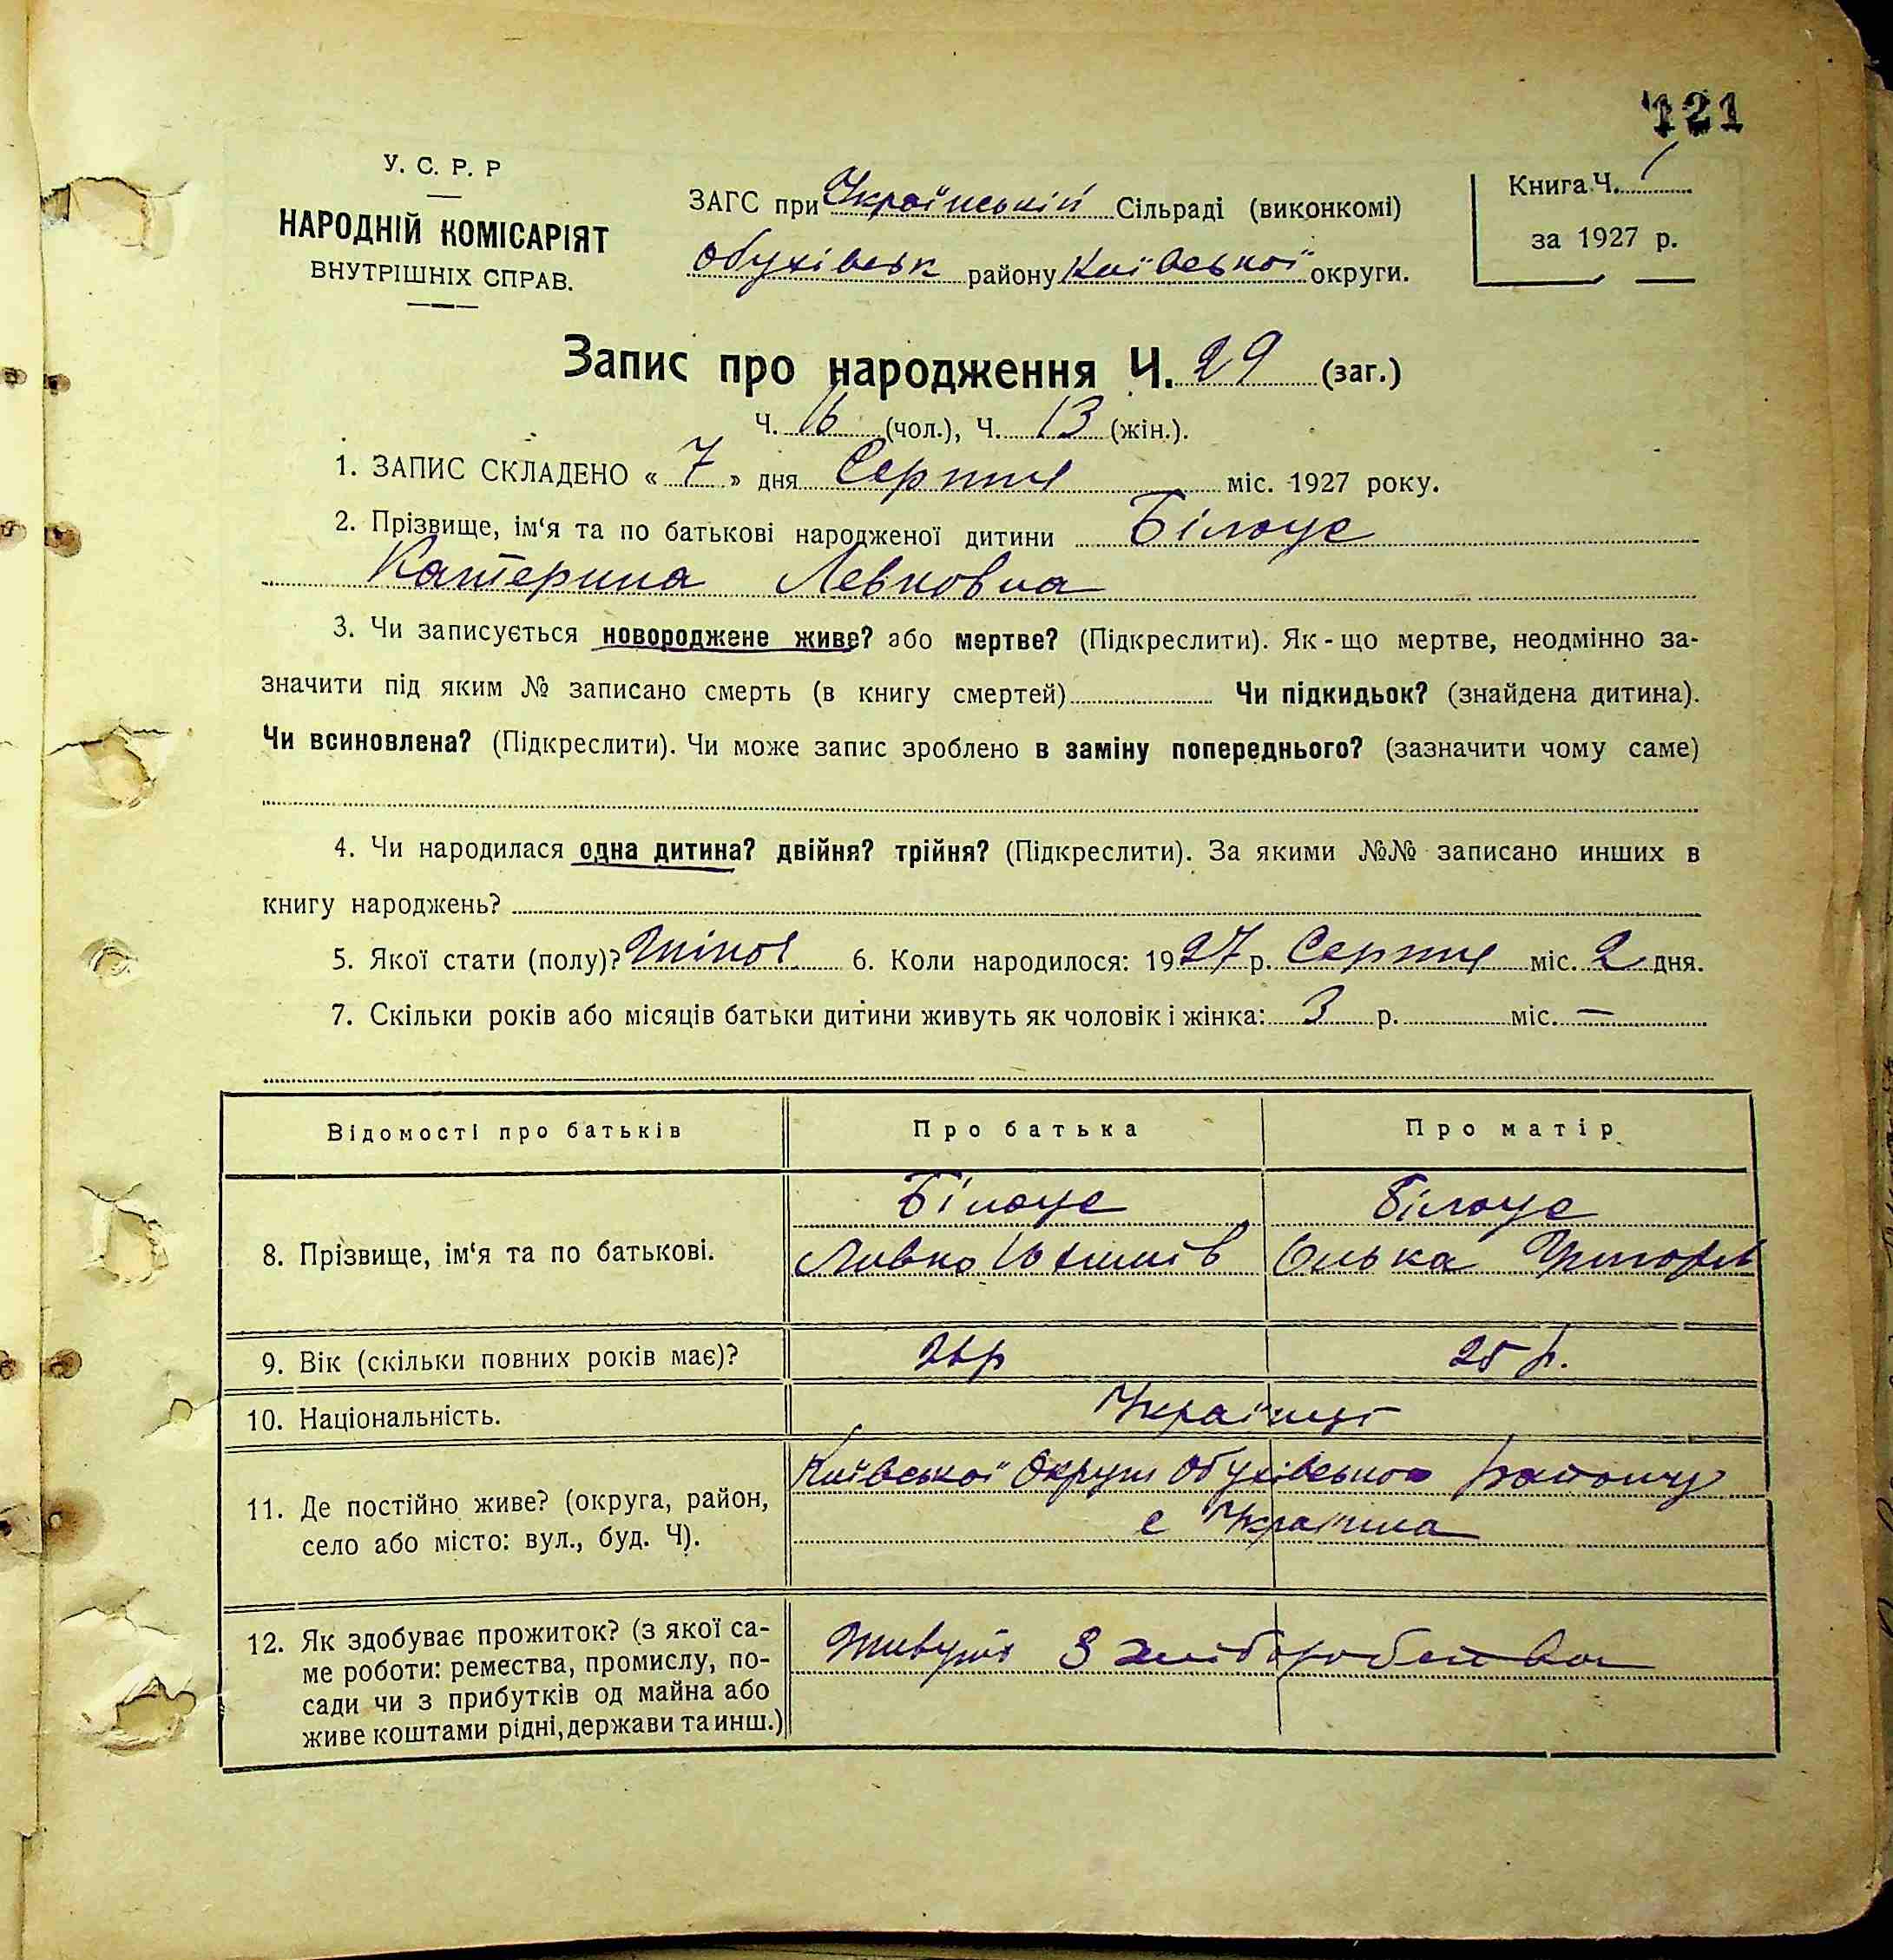 121
У. С. Р. Р
НАРОДНІЙ КОМІСАРІЯТ
ВНУТРІШНІХ СПРАВ.
ЗАГС при Українській Сільраді (виконкомі)
Обухівськ району Київської округи.
Книга Ч. 1
за 1927 р.
Запис про народження Ч. 29 (заг.)
Ч. 16 (чол.), Ч. 13 (жін.).
1. ЗАПИС СКЛАДЕНО « 7 » дня Серпня міс. 1927 року.
2. Прізвище, ім‘я та по батькові народженої дитини Білоус
Катерина Левковна
3. Чи записується новороджене живе? або мертве? (Підкреслити). Як-що мертве, неодмінно за-
значити під яким № записано смерть (в книгу смертей) Чи підкидьок? (знайдена дитина).
Чи всиновлена? (Підкреслити). Чи може запис зроблено в заміну попереднього? (зазначити чому саме)
4. Чи народилася одна дитина? двійня? трійня? (Підкреслити). За якими №№ записано инших в
книгу народжень?
5. Якої стати (полу)? Жіноч. 6. Коли народилося: 1927 р. Серпня міс. 2 дня.
7. Скільки років або місяців батьки дитини живуть як чоловік і жінка: 3 р. міс. —
Відомості про батьків
Про батька
Про матір
8. Прізвище, ім‘я та по батькові.
Білоус
Левко
Білоус
Олька Григорів
9. Вік (скільки повних років має)?
25 р.
10. Національність.
Українці
11. Де постійно живе? (округа, район,
село або місто: вул., буд. Ч).
Київської Округи Обухівського району
с Українка
12. Як здобуває прожиток? (з якої са-
ме роботи: ремества, промислу, по-
сади чи з прибутків од майна або
живе коштами рідні, держави та инш.)
Живуть З хліборобства